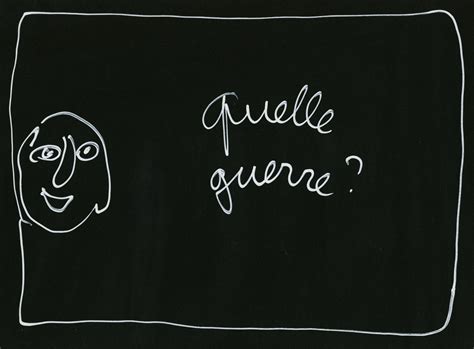 quelle
guerre?